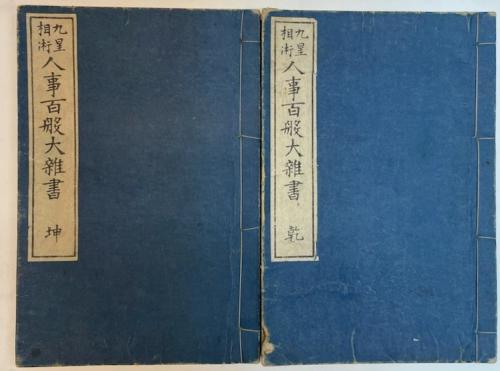 九星
相術
人事百般大雜書 乾
九星
相術
人事百般大雜書 坤